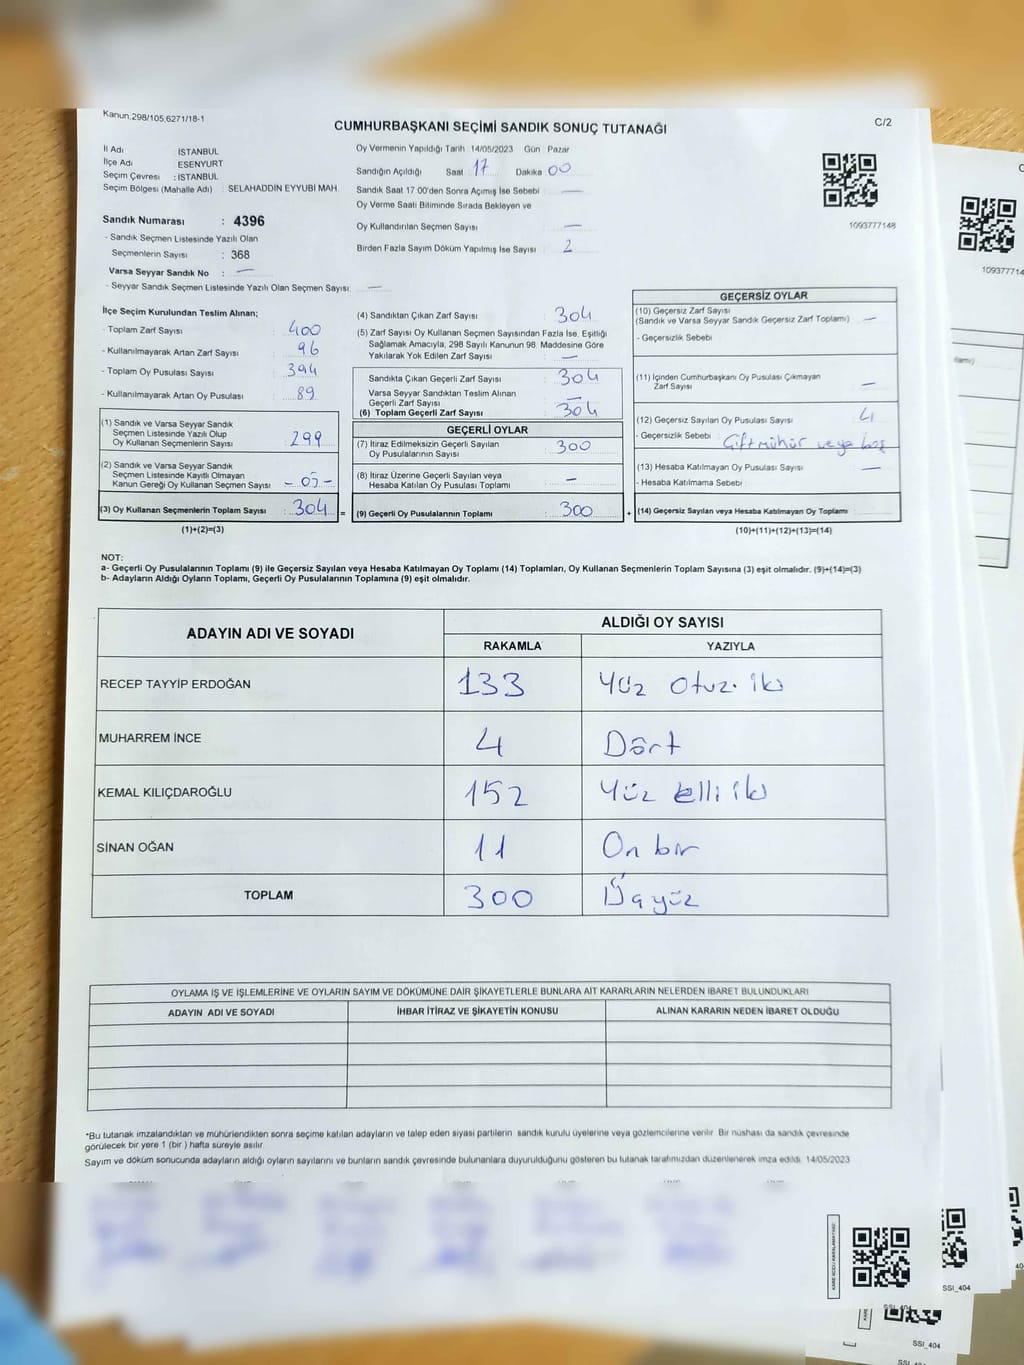 Kanun.298/105,6271/18-1
CUMHURBAŞKANI SEÇİMİ SANDIK SONUÇ TUTANAĞI
C/2
İl Adı : İSTANBUL
İlçe Adı : ESENYURT
Seçim Çevresi : İSTANBUL
Seçim Bölgesi (Mahalle Adı) : SELAHADDİN EYYUBİ MAH.
Sandık Numarası : 4396
- Sandık Seçmen Listesinde Yazılı Olan
Seçmenlerin Sayısı : 368
Varsa Seyyar Sandık No : —
- Seyyar Sandık Seçmen Listesinde Yazılı Olan Seçmen Sayısı: —
Oy Vermenin Yapıldığı Tarih 14/05/2023 Gün : Pazar
Sandığın Açıldığı Saat 17 Dakika 00
Sandık Saat 17 00'den Sonra Açımış İse Sebebi —
Oy Verme Saati Bitiminde Sırada Bekleyen ve
Oy Kullandırılan Seçmen Sayısı : —
Birden Fazla Sayım Döküm Yapılmış İse Sayısı : 2
1093777148
10937771
İlçe Seçim Kurulundan Teslim Alınan;
- Toplam Zarf Sayısı : 400
- Kullanılmayarak Artan Zarf Sayısı : 96
- Toplam Oy Pusulası Sayısı : 394
- Kullanılmayarak Artan Oy Pusulası : 89
(1) Sandık ve Varsa Seyyar Sandık
Seçmen Listesinde Yazılı Olup
Oy Kullanan Seçmenlerin Sayısı : 299
(2) Sandık ve Varsa Seyyar Sandık
Seçmen Listesinde Kayıtlı Olmayan
Kanun Gereği Oy Kullanan Seçmen Sayısı - 05 -
(3) Oy Kullanan Seçmenlerin Toplam Sayısı : 304 =
(1)+(2)=(3)
(4) Sandıktan Çıkan Zarf Sayısı : 304
(5) Zarf Sayısı Oy Kullanan Seçmen Sayısından Fazla İse, Eşitliği
Sağlamak Amacıyla, 298 Sayılı Kanunun 98. Maddesine Göre
Yakılarak Yok Edilen Zarf Sayısı : —
Sandıkta Çıkan Geçerli Zarf Sayısı : 304
Varsa Seyyar Sandıktan Teslim Alınan
Geçerli Zarf Sayısı : —
(6) Toplam Geçerli Zarf Sayısı : 304
GEÇERLİ OYLAR
(7) İtiraz Edilmeksizin Geçerli Sayılan
Oy Pusulalarının Sayısı : 300
(8) İtiraz Üzerine Geçerli Sayılan veya
Hesaba Katılan Oy Pusulası Toplamı : —
(9) Geçerli Oy Pusulalarının Toplamı : 300 +
GEÇERSİZ OYLAR
(10) Geçersiz Zarf Sayısı
(Sandık ve Varsa Seyyar Sandık Geçersiz Zarf Toplamı) : —
- Geçersizlik Sebebi :
(11) İçinden Cumhurbaşkanı Oy Pusulası Çıkmayan
Zarf Sayısı : —
(12) Geçersiz Sayılan Oy Pusulası Sayısı : 4
- Geçersizlik Sebebi : Çift mühür veya boş
(13) Hesaba Katılmayan Oy Pusulası Sayısı : —
- Hesaba Katılmama Sebebi :
(14) Geçersiz Sayılan veya Hesaba Katılmayan Oy Toplamı :
(10)+(11)+(12)+(13)=(14)
NOT:
a- Geçerli Oy Pusulalarının Toplamı (9) ile Geçersiz Sayılan veya Hesaba Katılmayan Oy Toplamı (14) Toplamları, Oy Kullanan Seçmenlerin Toplam Sayısına (3) eşit olmalıdır. (9)+(14)=(3)
b- Adayların Aldığı Oyların Toplamı, Geçerli Oy Pusulalarının Toplamına (9) eşit olmalıdır.
ADAYIN ADI VE SOYADI
ALDIĞI OY SAYISI
RAKAMLA
YAZIYLA
RECEP TAYYİP ERDOĞAN 133 Yüz Otuz. iki
MUHARREM İNCE 4 Dört
KEMAL KILIÇDAROĞLU 152 Yüz elli iki
SİNAN OĞAN 11 On bir
TOPLAM 300 Üçyüz
OYLAMA İŞ VE İŞLEMLERİNE VE OYLARIN SAYIM VE DÖKÜMÜNE DAİR ŞİKAYETLERLE BUNLARA AİT KARARLARIN NELERDEN İBARET BULUNDUKLARI
ADAYIN ADI VE SOYADI
İHBAR İTİRAZ VE ŞİKAYETİN KONUSU
ALINAN KARARIN NEDEN İBARET OLDUĞU
*Bu tutanak imzalandıktan ve mühürlendikten sonra seçime katılan adayların ve talep eden siyasi partilerin sandık kurulu üyelerine veya gözlemcilerine verilir. Bir nüshası da sandık çevresinde
görülecek bir yere 1 (bir ) hafta süreyle asılır.
Sayım ve döküm sonucunda adayların aldığı oyların sayılarını ve bunların sandık çevresinde bulunanlara duyurulduğunu gösteren bu tutanak tarafımızdan düzenlenerek imza edildi. 14/05/2023
SSI_404
SSI_404